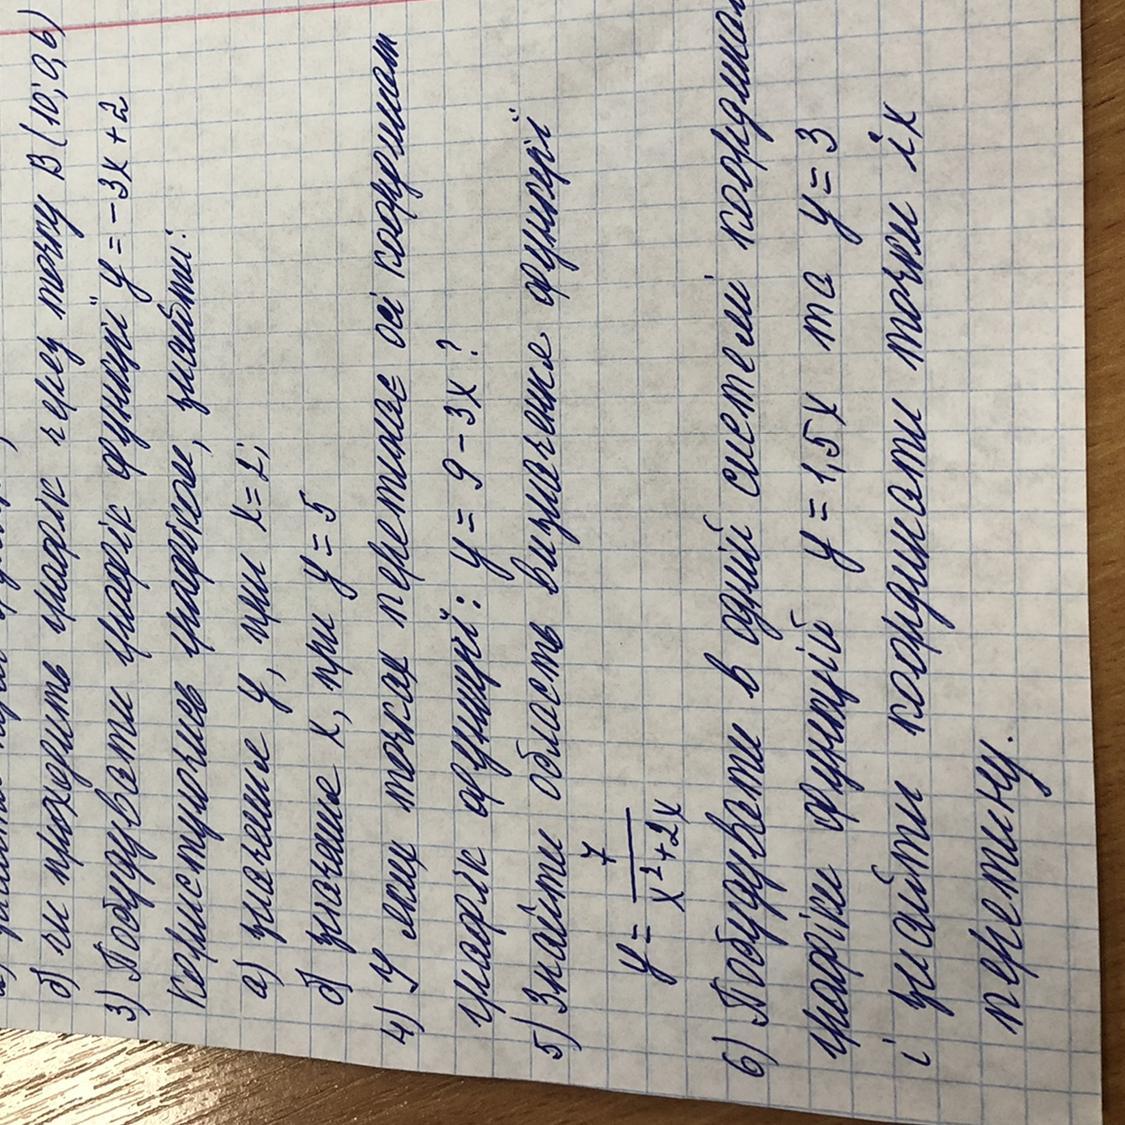 б) чи проходить графік через точку В (10; 0,6)
3) Побудувати графік функції y = -3x + 2
Користуючись графіком, знайти:
а) значення y, при x = 2;
б) значення x, при y = 5
4) У яких точках перетинає осі координат
графік функції: y = 9 - 3x ?
5) Знайти область визначення функції
y = 7 / (x² + 2x)
6) Побудувати в одній системі координат
графіки функцій y = 1,5x та y = 3
і знайти координати точки їх
перетину.